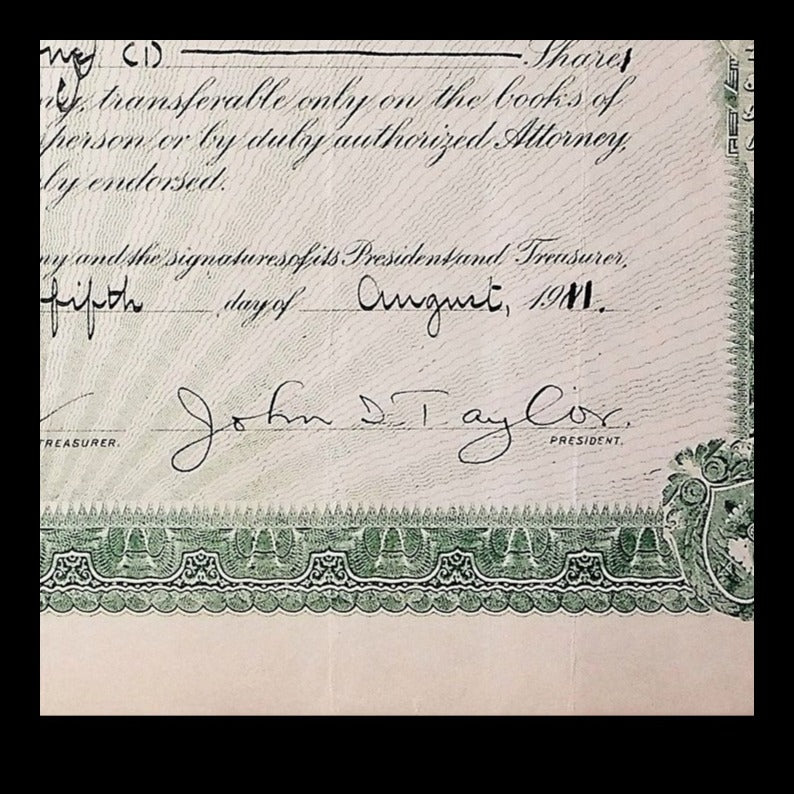 one (1) Shares
ny, transferable only on the books of
person or by duly authorized Attorney,
ly endorsed.
ny and the signatures of its President and Treasurer,
fifth day of August, 1911.
John D. Taylor.
TREASURER. PRESIDENT.